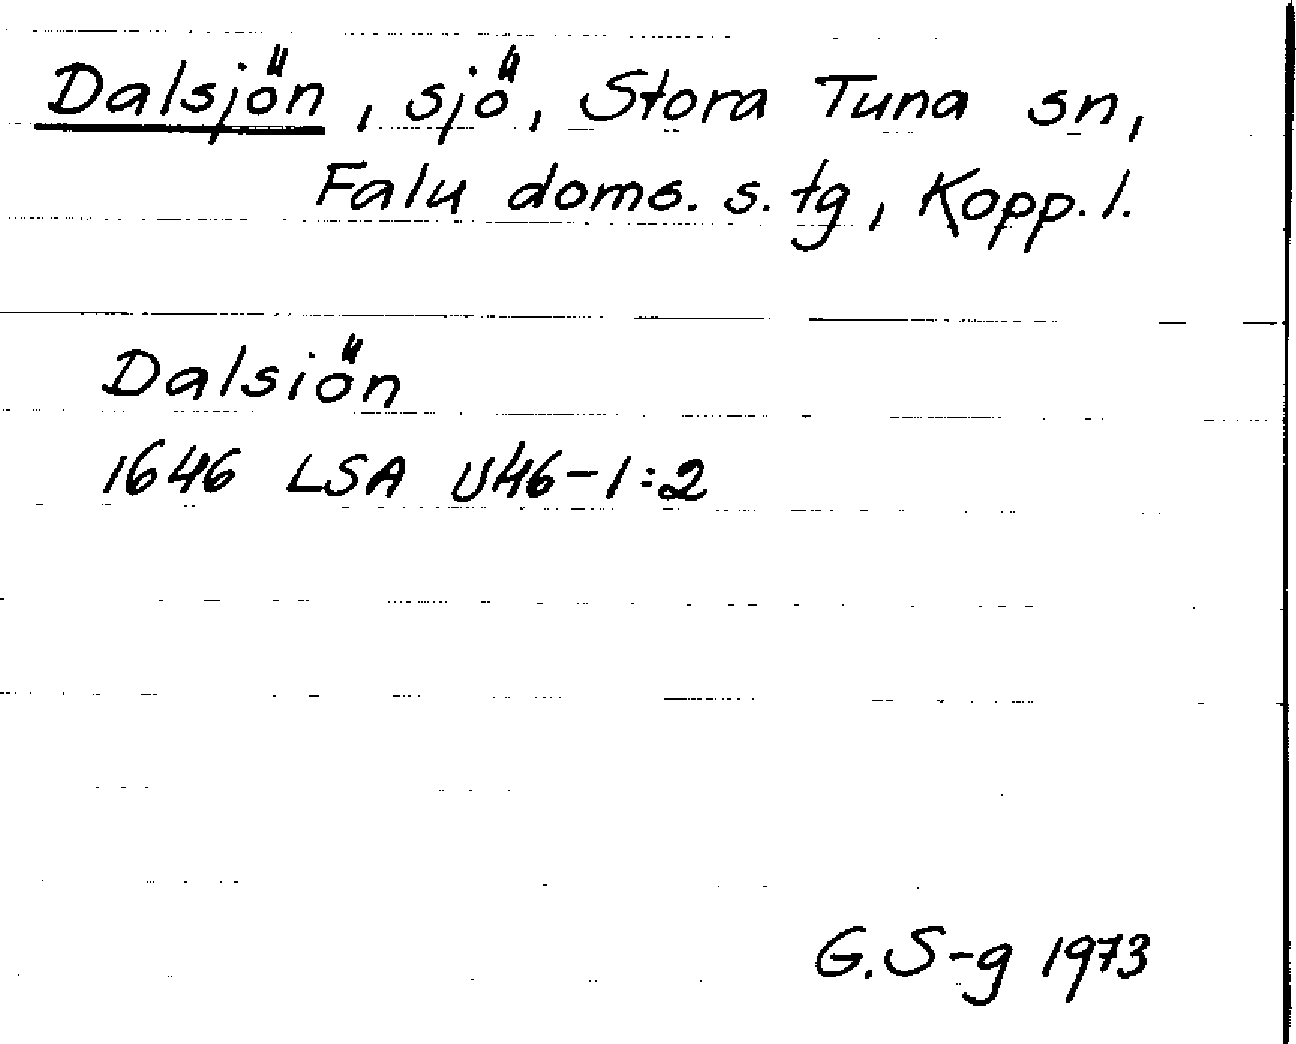 Dalsjön, sjö, Stora Tuna sn,
Falu doms. s. tg, Kopp. l.
Dalsiön
1646 LSA U46-1:2
G. S-g 1973